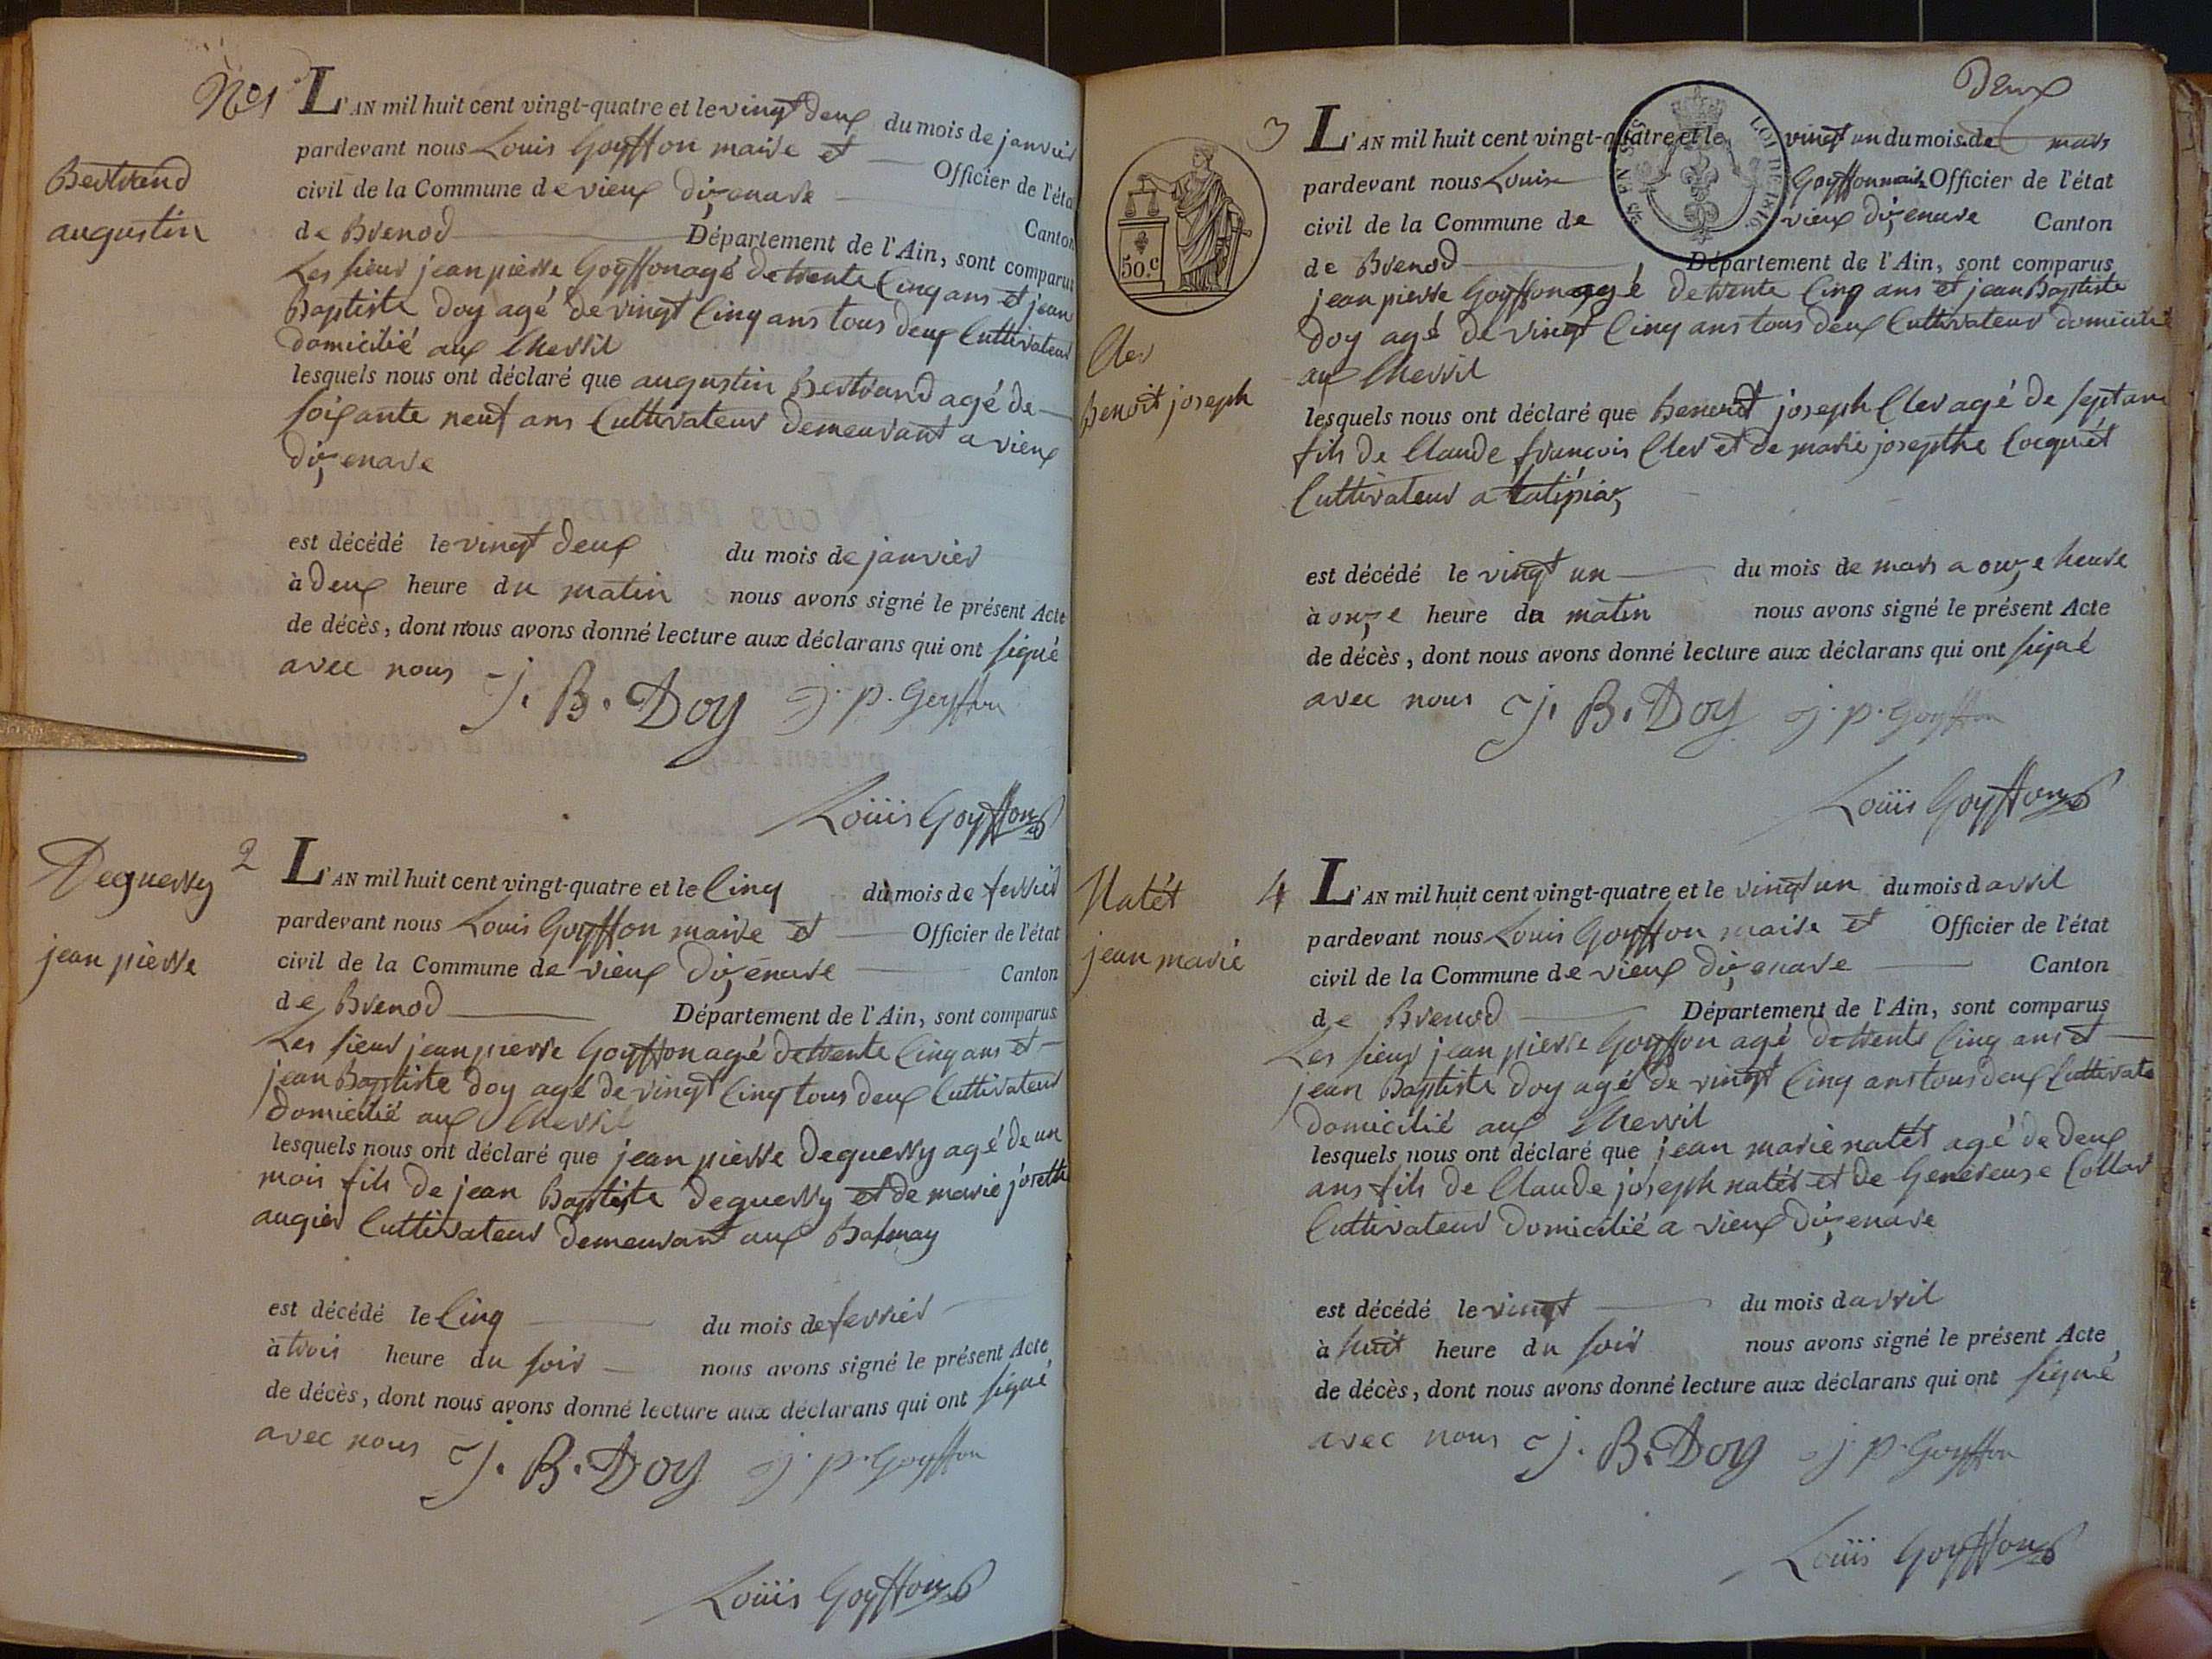 No 1
L'AN mil huit cent vingt-quatre et le vingt deux du mois de janvier
pardevant nous Louis Goyffon maire et Officier de l'état
Bertrand
augustin
civil de la Commune de vieux dizenave Canton
de Brenod Département de l'Ain, sont comparus
Les sieur jean pierre Goyffon agé de trente cinq ans et jean
Baptiste doy agé de vingt cinq ans tous deux cultivateur
domicilié aux Chevril
lesquels nous ont déclaré que augustin Bertrand agé de
soixante neuf ans cultivateur demeurant a vieux
dizenave
est décédé le vingt deux du mois de janvier
à deux heure du matin nous avons signé le présent Acte
de décès, dont nous avons donné lecture aux déclarans qui ont signé
avec nous J. B. Doy j. p. Goyffon
Loüis Goyffon
Deguerry
jean pierre
2
L'AN mil huit cent vingt-quatre et le cinq du mois de fevrier
pardevant nous Louis Goyffon maire et Officier de l'état
civil de la Commune de vieux dizenave Canton
de Brenod Département de l'Ain, sont comparus
Les sieur jean pierre Goyffon agé de trente cinq ans et
jean Baptiste doy agé de vingt cinq tous deux cultivateur
domicilié aux Chevril
lesquels nous ont déclaré que jean pierre deguerry agé de un
mois fils de jean Baptiste deguerry et de marie josette
augier cultivateur demeurant aux Balmay
est décédé le cinq du mois de fevrier
à trois heure du soir nous avons signé le présent Acte
de décès, dont nous avons donné lecture aux déclarans qui ont signé
avec nous J. B. Doy j. p. Goyffon
Loüis Goyffon
Deux
LOI DE 1816
50.c
3
L'AN mil huit cent vingt-quatre et le vingt un du mois de mars
pardevant nous Louis Goyffon maire Officier de l'état
civil de la Commune de vieux dizenave Canton
de Brenod Département de l'Ain, sont comparus
jean pierre Goyffon agé de trente cinq ans et jean Baptiste
doy agé de vingt cinq ans tous deux cultivateur domicilié
aux Chevril
Cler
Benoit joseph
lesquels nous ont déclaré que Benoit joseph Cler agé de sept ans
fils de Claude françois Cler et de marie josepthe Cocquét
cultivateur a
est décédé le vingt un du mois de mars a onze heure
à onze heure du matin nous avons signé le présent Acte
de décès, dont nous avons donné lecture aux déclarans qui ont signé
avec nous J. B. Doy j. p. Goyffon
Loüis Goyffon
Natét
jean marie
4
L'AN mil huit cent vingt-quatre et le vingt un du mois d avril
pardevant nous Louis Goyffon maire et Officier de l'état
civil de la Commune de vieux dizenave Canton
de Brenod Département de l'Ain, sont comparus
Les sieur jean pierre Goyffon agé de trente cinq ans et
jean Baptiste doy agé de vingt cinq ans tous deux cultivate
domicilié aux Chevril
lesquels nous ont déclaré que jean marie natét agé de deux
ans fils de Claude joseph natét et de Genereuse Collar
cultivateur domicilié a vieux dizenave
est décédé le vingt du mois d avril
à huit heure du soir nous avons signé le présent Acte
de décès, dont nous avons donné lecture aux déclarans qui ont signé
avec nous J. B. Doy j. p. Goyffon
Loüis Goyffon